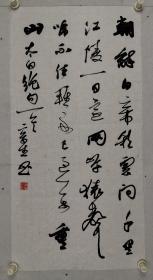 朝辞白帝彩云间千里
江陵一日还两岸猿声
啼不住轻舟已过万重
山太白绝句一首